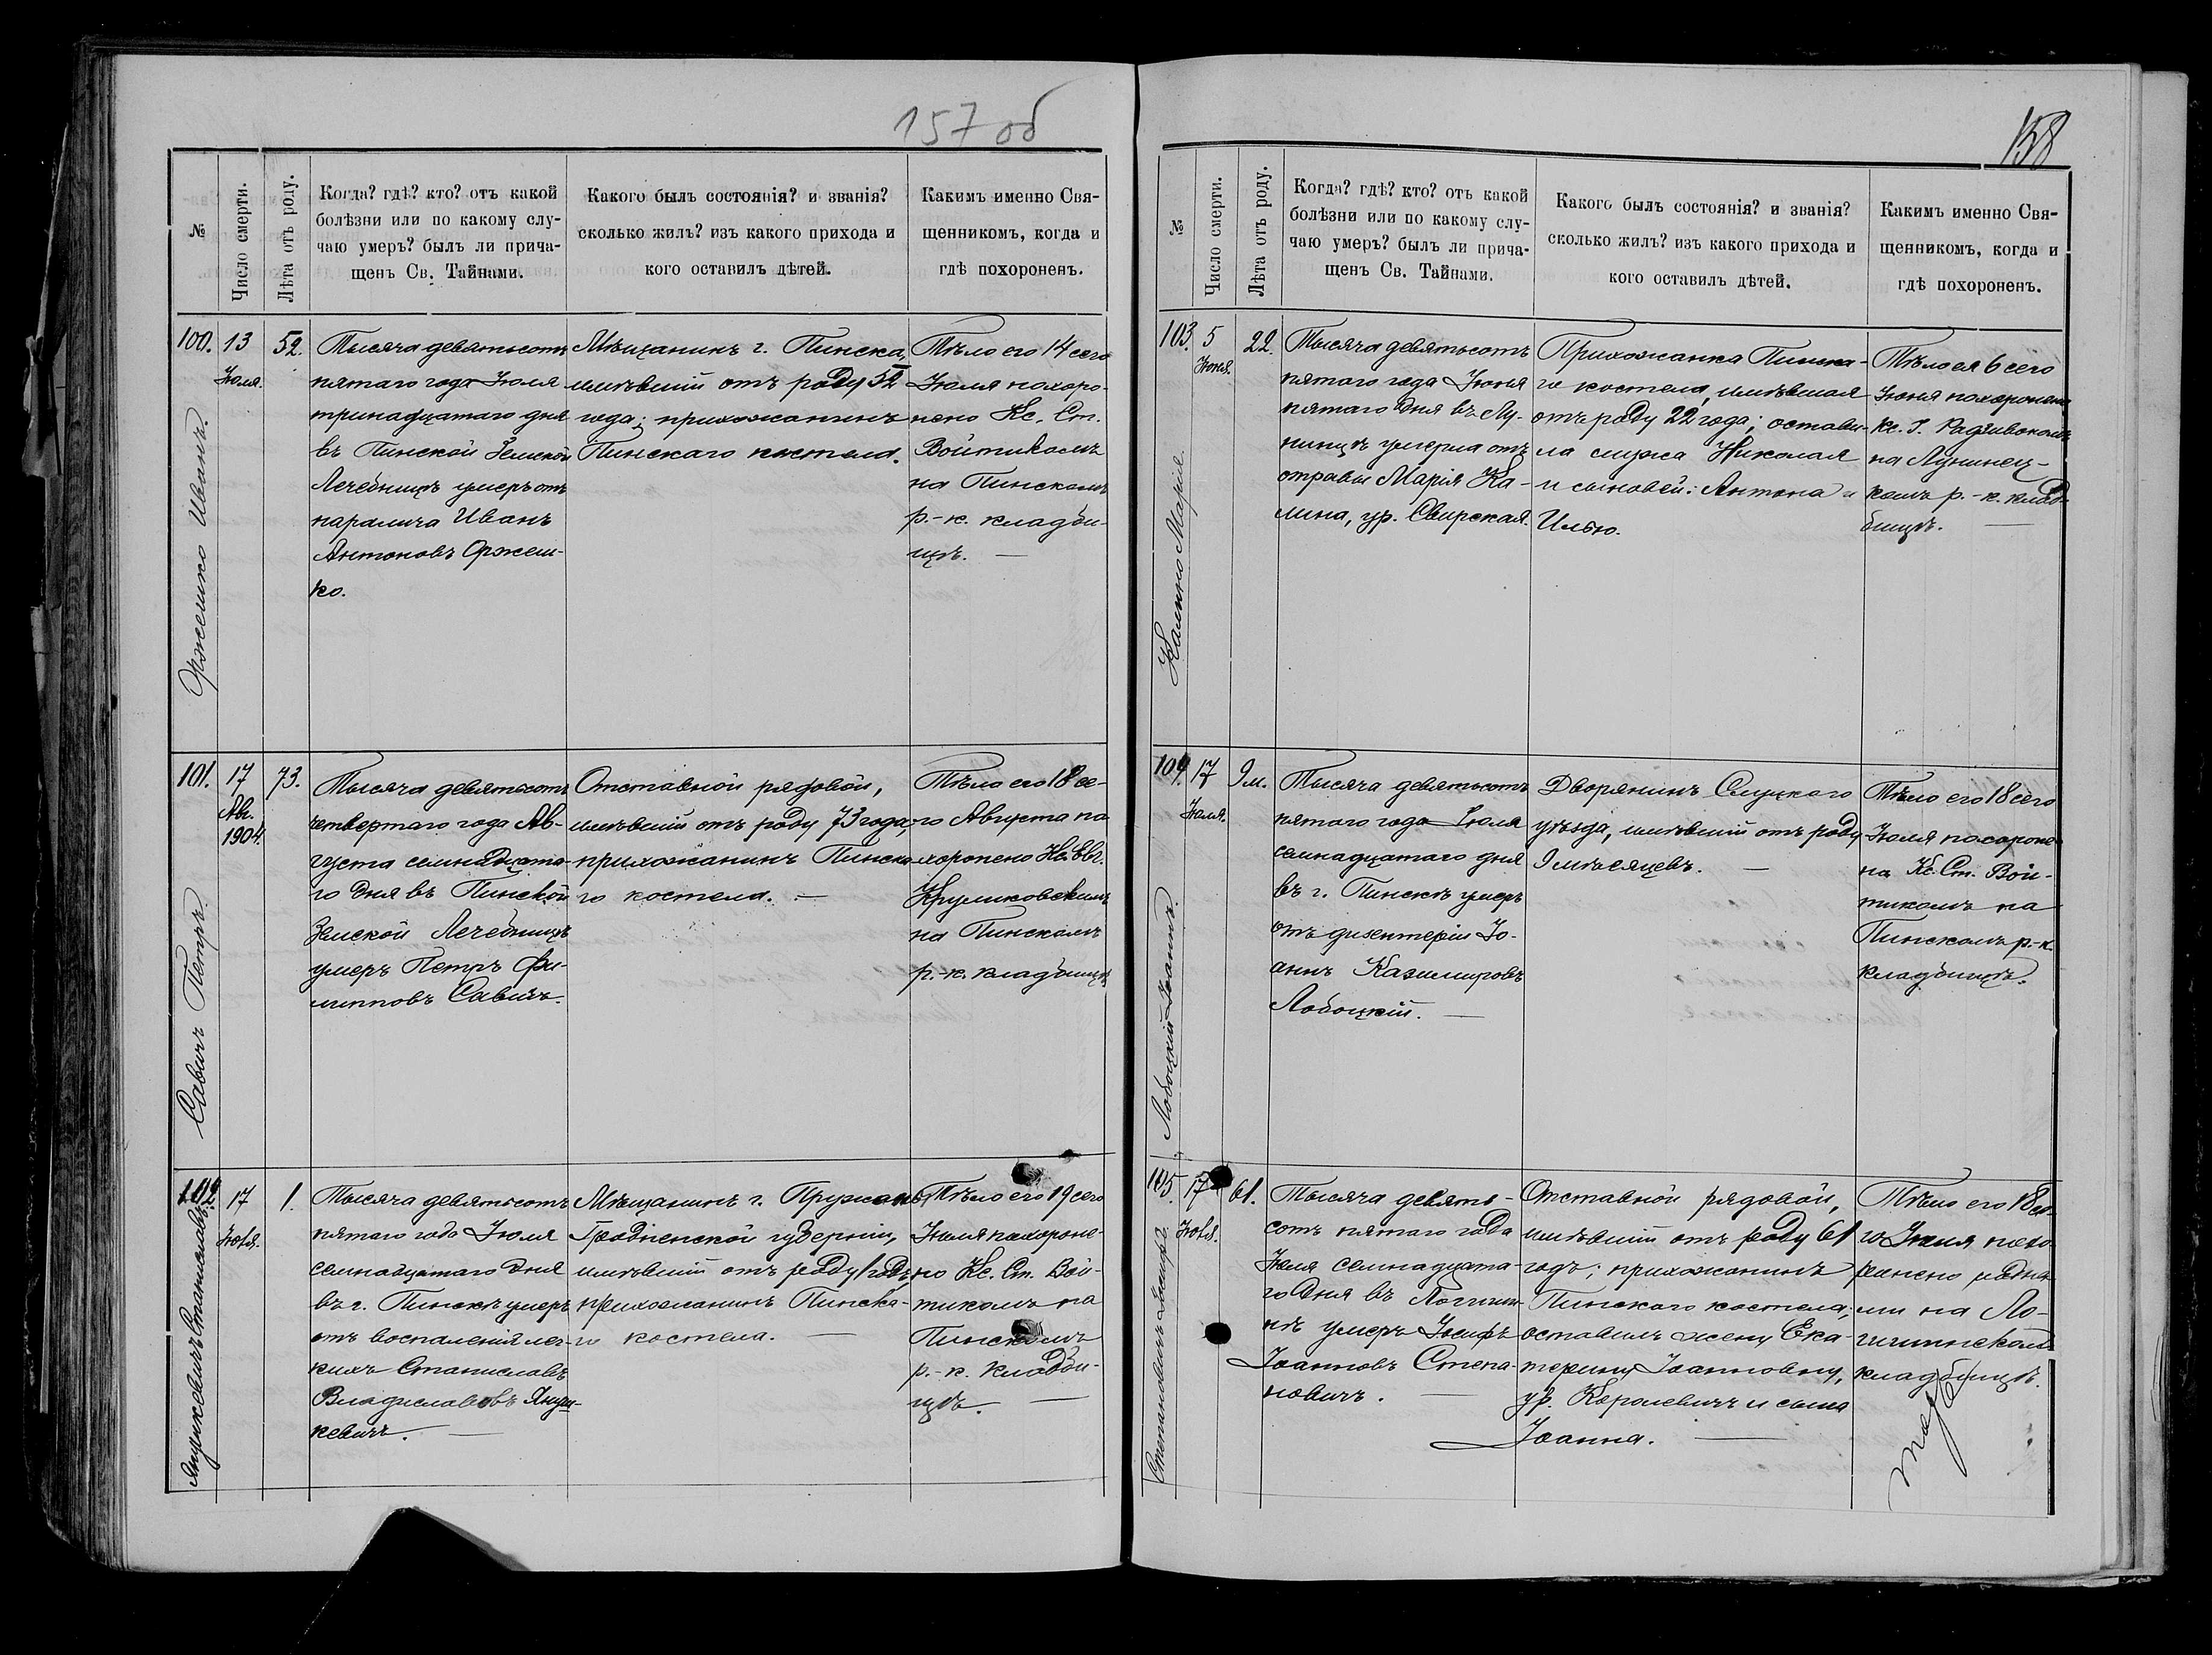 157 об
№
Число смерти.
Лѣта отъ роду.
Когда? гдѣ? кто? отъ какой
болѣзни или по какому слу-
чаю умеръ? былъ ли прича-
щенъ Св. Тайнами.
Какого былъ состоянія? и званія?
сколько жилъ? изъ какого прихода и
кого оставилъ дѣтей.
Какимъ именно Свя-
щенникомъ, когда и
гдѣ похороненъ.
100.
Оржешко Иванъ.
13
Іюля.
52.
Тысяча девятьсотъ
пятаго года Іюля
тринадцатаго дня
въ Пинской Земской
Лечебницѣ умеръ отъ
паралича Иванъ
Антоновъ Оржеш-
ко.
Мѣщанинъ г. Пинска,
имѣвшій отъ роду 52
года; прихожанинъ
Пинскаго костела.
Тѣло его 14 сего
Іюля похоро-
нено Кс. Ст.
Войтикомъ
на Пинскомъ
р.-к. кладби-
щѣ. —
101.
Савичъ Петръ.
17
Авг.
1904.
73.
Тысяча девятьсотъ
четвертаго года Ав-
густа семнадцата-
го дня въ Пинской
Земской Лечебницѣ
умеръ Петръ Фи-
липповъ Савичъ.
Отставной рядовой,
имѣвшій отъ роду 73 года,
прихожанинъ Пинска-
го костела. —
Тѣло его 18 се-
го Августа по-
хоронено Кс. Евг.
Круликовскимъ
на Пинскомъ
р.-к. кладбищѣ
102.
Янушкевичъ Станиславъ.
17
Іюля.
1.
Тысяча девятьсотъ
пятаго года Іюля
семнадцатаго дня
въ г. Пинскѣ умеръ
отъ воспаленія лег-
кихъ Станиславъ
Владиславовъ Януш-
кевичъ. —
Мѣщанинъ г. Пружанъ
Гродненской губерніи,
имѣвшій отъ роду 1 годъ,
прихожанинъ Пинска-
го костела. —
Тѣло его 19 сего
Іюля похороне-
но Кс. Ст. Вой-
тикомъ на
Пинскомъ
р.-к. кладби-
щѣ. —
158
№
Число смерти.
Лѣта отъ роду.
Когда? гдѣ? кто? отъ какой
болѣзни или по какому слу-
чаю умеръ? былъ ли прича-
щенъ Св. Тайнами.
Какого былъ состоянія? и званія?
сколько жилъ? изъ какого прихода и
кого оставилъ дѣтей.
Какимъ именно Свя-
щенникомъ, когда и
гдѣ похороненъ.
103.
Калино Марія.
5
Іюня.
22.
Тысяча девятьсотъ
пятаго года Іюня
пятаго дня въ Лу-
нинцѣ умерла отъ
отравы Марія Ка-
лина, ур. Свирская.
Прихожанка Пинска-
го костела, имѣвшая
отъ роду 22 года; остави-
ла мужа Николая
и сыновей: Антона и
Илью.
Тѣло ея 6 сего
Іюня похоронено
Кс.
на Лунинец-
комъ р.-к. клад-
бищѣ. —
104.
Лобоцкій Іоаннъ.
17
Іюля.
9 м.
Тысяча девятьсотъ
пятаго года Іюля
семнадцатаго дня
въ г. Пинскѣ умеръ
отъ дизентеріи Іо-
аннъ Казимировъ
Лобоцкій. —
Дворянинъ Слуцкаго
уѣзда, имѣвшій отъ роду
9 мѣсяцевъ. —
Тѣло его 18 сего
Іюля похороне-
на Кс. Ст. Вой-
тикомъ на
Пинскомъ р.-к.
кладбищѣ.
105.
Степановичъ Іосифъ.
17
Іюля.
61.
Тысяча девять-
сотъ пятаго года
Іюля семнадцата-
го дня въ Логиши-
нѣ умеръ Іосифъ
Іоанновъ Степа-
новичъ. —
Отставной рядовой,
имѣвшій отъ роду 61
годъ; прихожанинъ
Пинскаго костела;
оставилъ жену Ека-
терину Іоанновну,
ур. Королевичъ и сына
Іоанна. —
Тѣло его 18 се-
го Іюля похо-
ронено родны-
ми на Ло-
гишинскомъ
кладбищѣ.